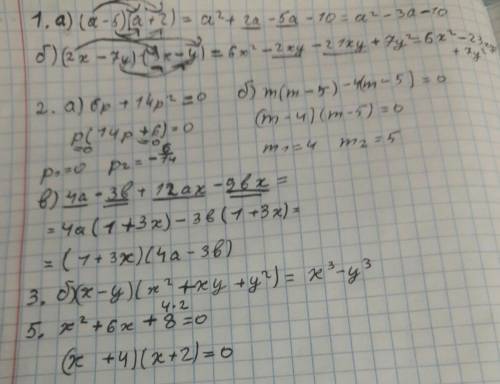 1. а) (a-5)(a+2) = a² + 2a - 5a - 10 = a² - 3a - 10
б) (2x - 7y)(3x - y) = 6x² - 2xy - 21xy + 7y² = 6x² - 23xy
+ 7y²
2. а) 6p + 14p² = 0 б) m(m-5) - 4(m-5) = 0
p(14p + 6) = 0 (m-4)(m-5) = 0
=0 =0
p₁ = 0 p₂ = -6/14 m₁ = 4 m₂ = 5
в) 4a - 3b + 12ax - 9bx =
= 4a(1+3x) - 3b(1+3x) =
= (1+3x)(4a-3b)
3. б) (x-y)(x² + xy + y²) = x³ - y³
4·2
5. x² + 6x + 8 = 0
(x + 4)(x+2) = 0